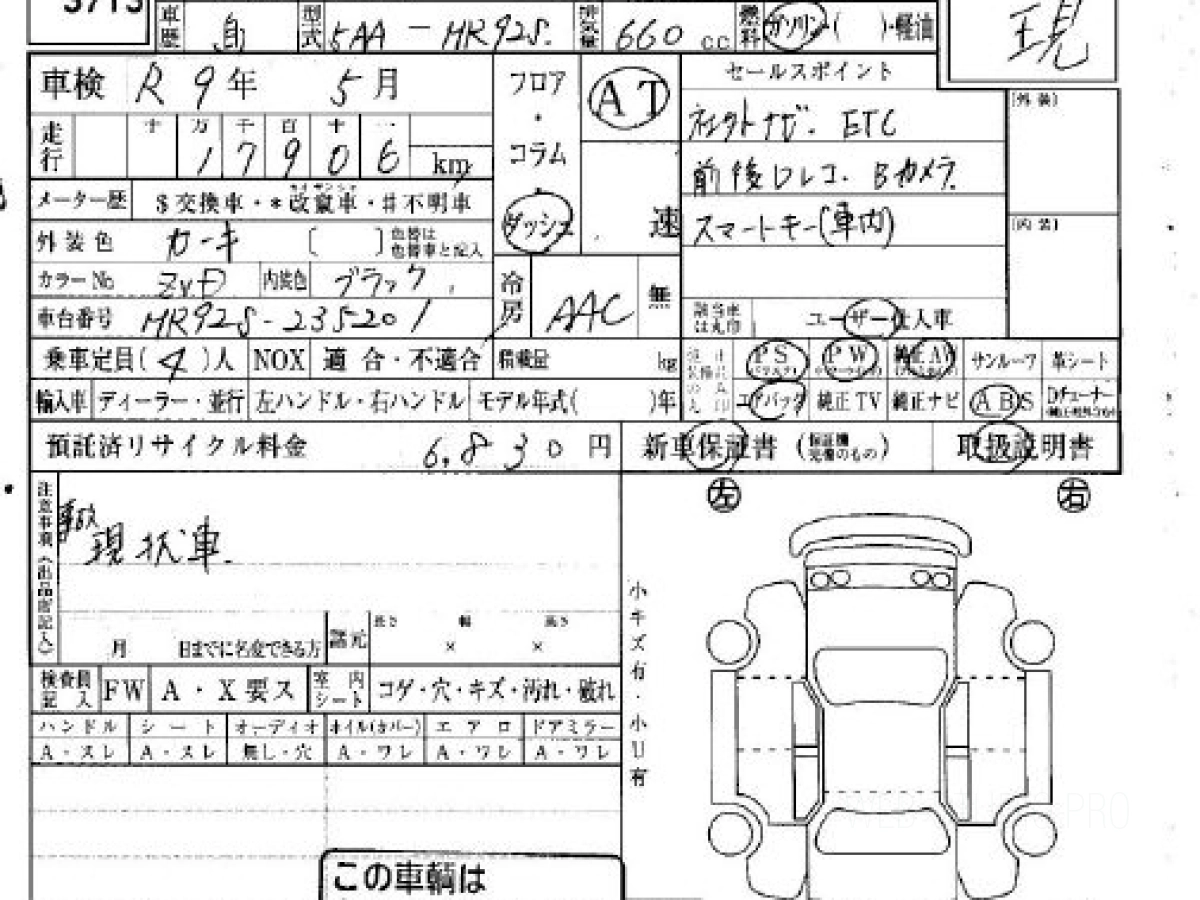 3713
車歴 自 型式 5AA-MR92S. 排気量 660 cc 燃料 ガソリン・( )・軽油
現
車検 R 9年 5月
フロア・コラム・ダッシュ
AT
速
セールスポイント
コネクトナビ. ETC
前後ドレコ. Bカメラ.
スマートキー(車内)
[外装]
[内装]
走行 十 万 千 百 十 一
1 7 9 0 6 km
メーター歴 $交換車・*改竄車・#不明車
外装色 カーキ [ ] 色替は色替車と記入
カラーNo ZVD 内装色 ブラック
冷房 AAC 無
車台番号 MR92S-235201
該当車は丸印 ユーザー・仕入車
乗車定員( 4 )人 NOX 適合・不適合 積載量 kg
PS PW 純正AW サンルーフ 革シート
輸入車 ディーラー・並行 左ハンドル・右ハンドル モデル年式( )年
エアバック 純正TV 純正ナビ ABS Dチューナー
預託済リサイクル料金 6,830 円
新車保証書 (保証継完備のもの) 取扱説明書
左 右
注意事項(出品店記入)
事故
現状車.
月 日までに名変できる方 諸元 長さ 幅 高さ
× ×
検査員記入 FW A・X要ス 室内シート コゲ・穴・キズ・汚れ・破れ
ハンドル シート オーディオ オイル(カバー) エアロ ドアミラー
A・スレ A・スレ 無し・穴 A・ワレ A・ワレ A・ワレ
小キズ有・小U有
この車輌は
PRO